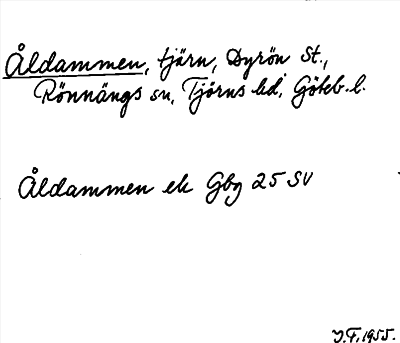 Åldammen, tjärn, Dyrön St.,
Rönnängs sn, Tjörns hd, Göteb. l.
Åldammen ek Gbg 25 SV
J.F. 1955.